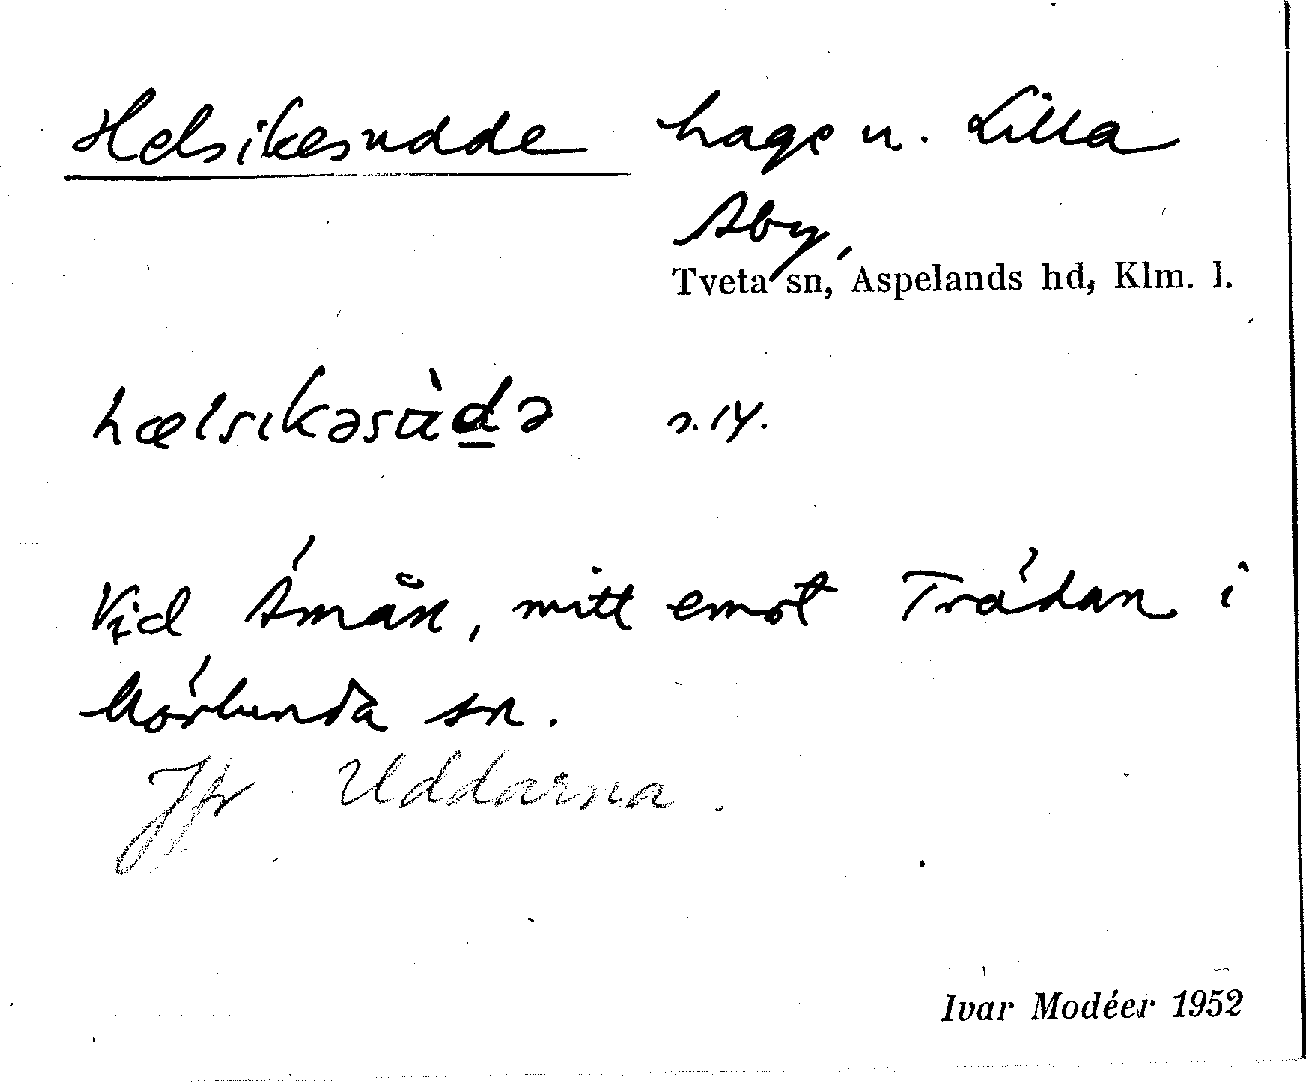 Helsikesudde hage u. Lilla
Åby,
Tveta sn, Aspelands hd, Klm. l.
hælsıkəsùdə s. 14.
Vid Åmån, mitt emot Trådan i
Mörlunda sn.
Jfr Uddarna.
Ivar Modéer 1952